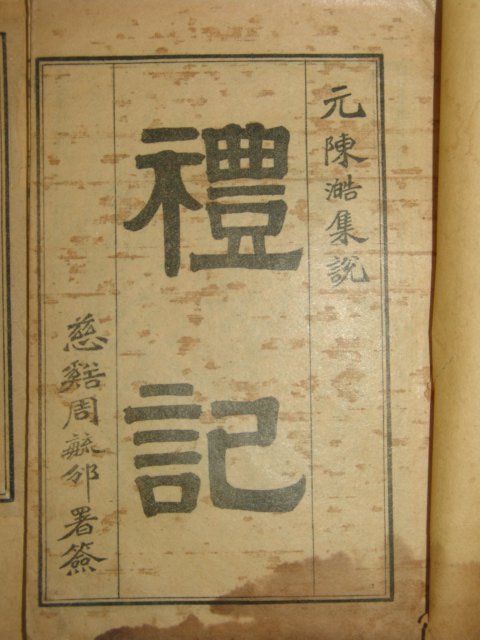 元陳澔集說
禮記
慈谿周毓邠署簽